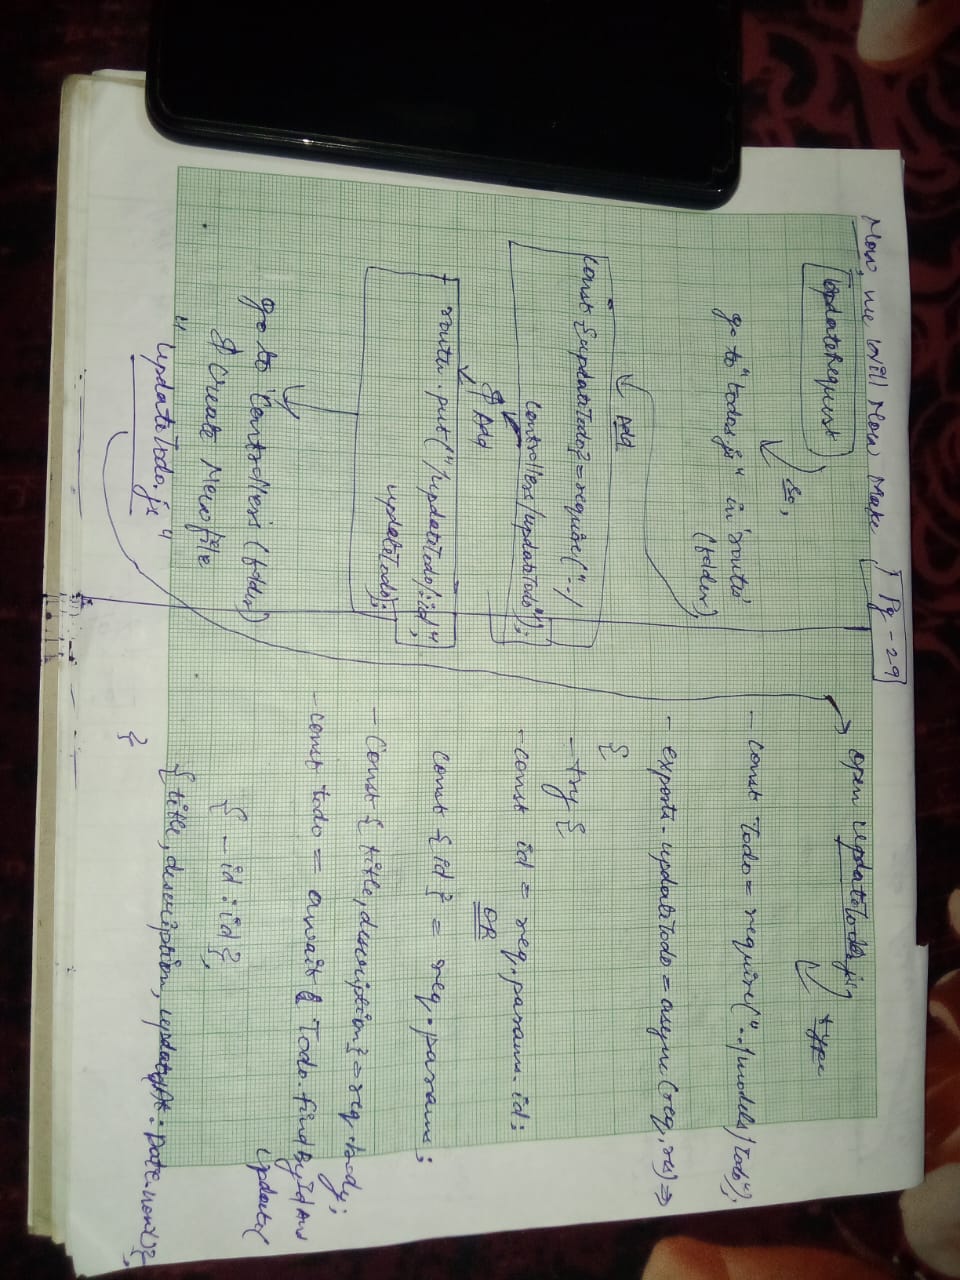 Now, we will Now Make
Pg - 29
Update Request
So,
go to "todos.js" in 'routes'
(folder)
Add
const {updateTodo} = require("../
controllers/updateTodo");
& Add
router.put("/updateTodo/:id",
updateTodo);
go to 'Controllers' (folder)
& Create New file
"updateTodo.js"
open updateTodo.js
type
- const Todo = require("../models/Todo");
- exports.updateTodo = async (req, res) =>
{
- try {
- const id = req.params.id;
OR
const {id} = req.params;
- Const {title, description} = req.body;
- const todo = await Todo.findByIdAnd
Update(
{_id:id},
{title, description, updatedAt: Date.now()},
}